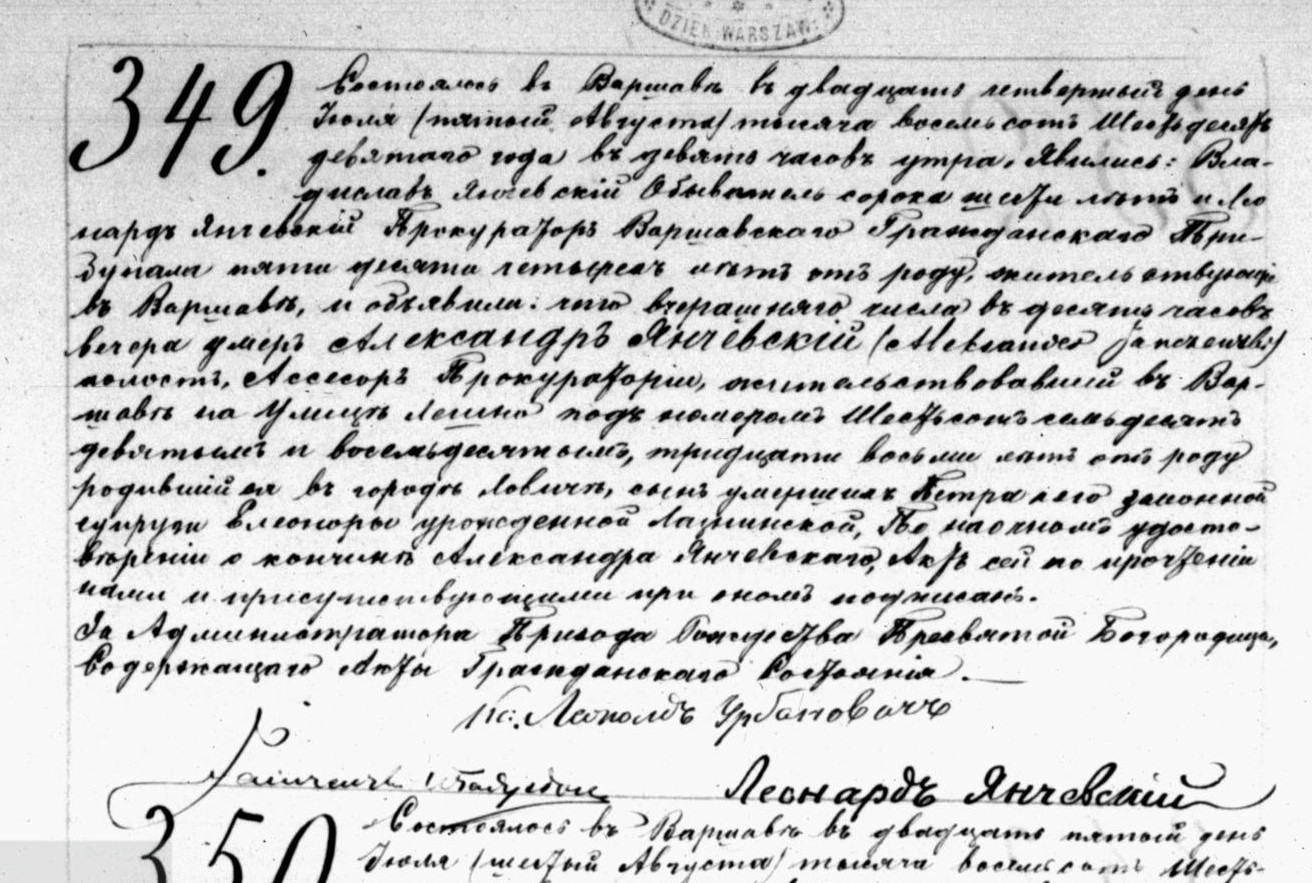 DZIEK. WARSZAW.
349.
Состоялось въ Варшавѣ въ двадцать четвертый день
Іюля (пятый Августа) тысяча восемьсотъ шестьдесятъ
девятаго года въ девять часовъ утра, явились: Вла-
диславъ Янчевскій Обыватель сорока шести лѣтъ и Лео
нардъ Янчевскій Прокураторъ Варшавскаго Гражданскаго Три-
бунала пяти десяти четырехъ лѣтъ отъ роду, жительствующіе
въ Варшавѣ, и объявили: что вчерашняго числа въ десять часовъ
вечера умеръ Александръ Янчевскій (Aleksander Janczewski)
холостъ, Ассесоръ Прокураторіи, жительствовавшій въ Вар-
шавѣ на Улицѣ Лешно подъ номеромъ шестьсотъ семьдесятъ
девятымъ и восемьдесятымъ, тридцати восьми лѣтъ отъ роду
родившійся въ городѣ Ловичѣ, сынъ умершихъ Петра и его законной
супруги Елеоноры урожденной Лазнинской, По наочномъ удосто-
вѣреніи о кончинѣ Александра Янчевскаго, Актъ сей по прочтеніи
нами и присутствующими при ономъ подписанъ.
За Администратора Прихода Рождества Пресвятой Богородицы,
Содержащаго Акты Гражданскаго Состоянія.
Кс. Леопольдъ Урбановичъ
Леонардъ Янчевскій
350
Состоялось въ Варшавѣ въ двадцать пятый день
Іюля (шестый Августа) тысяча восемьсотъ шесть-